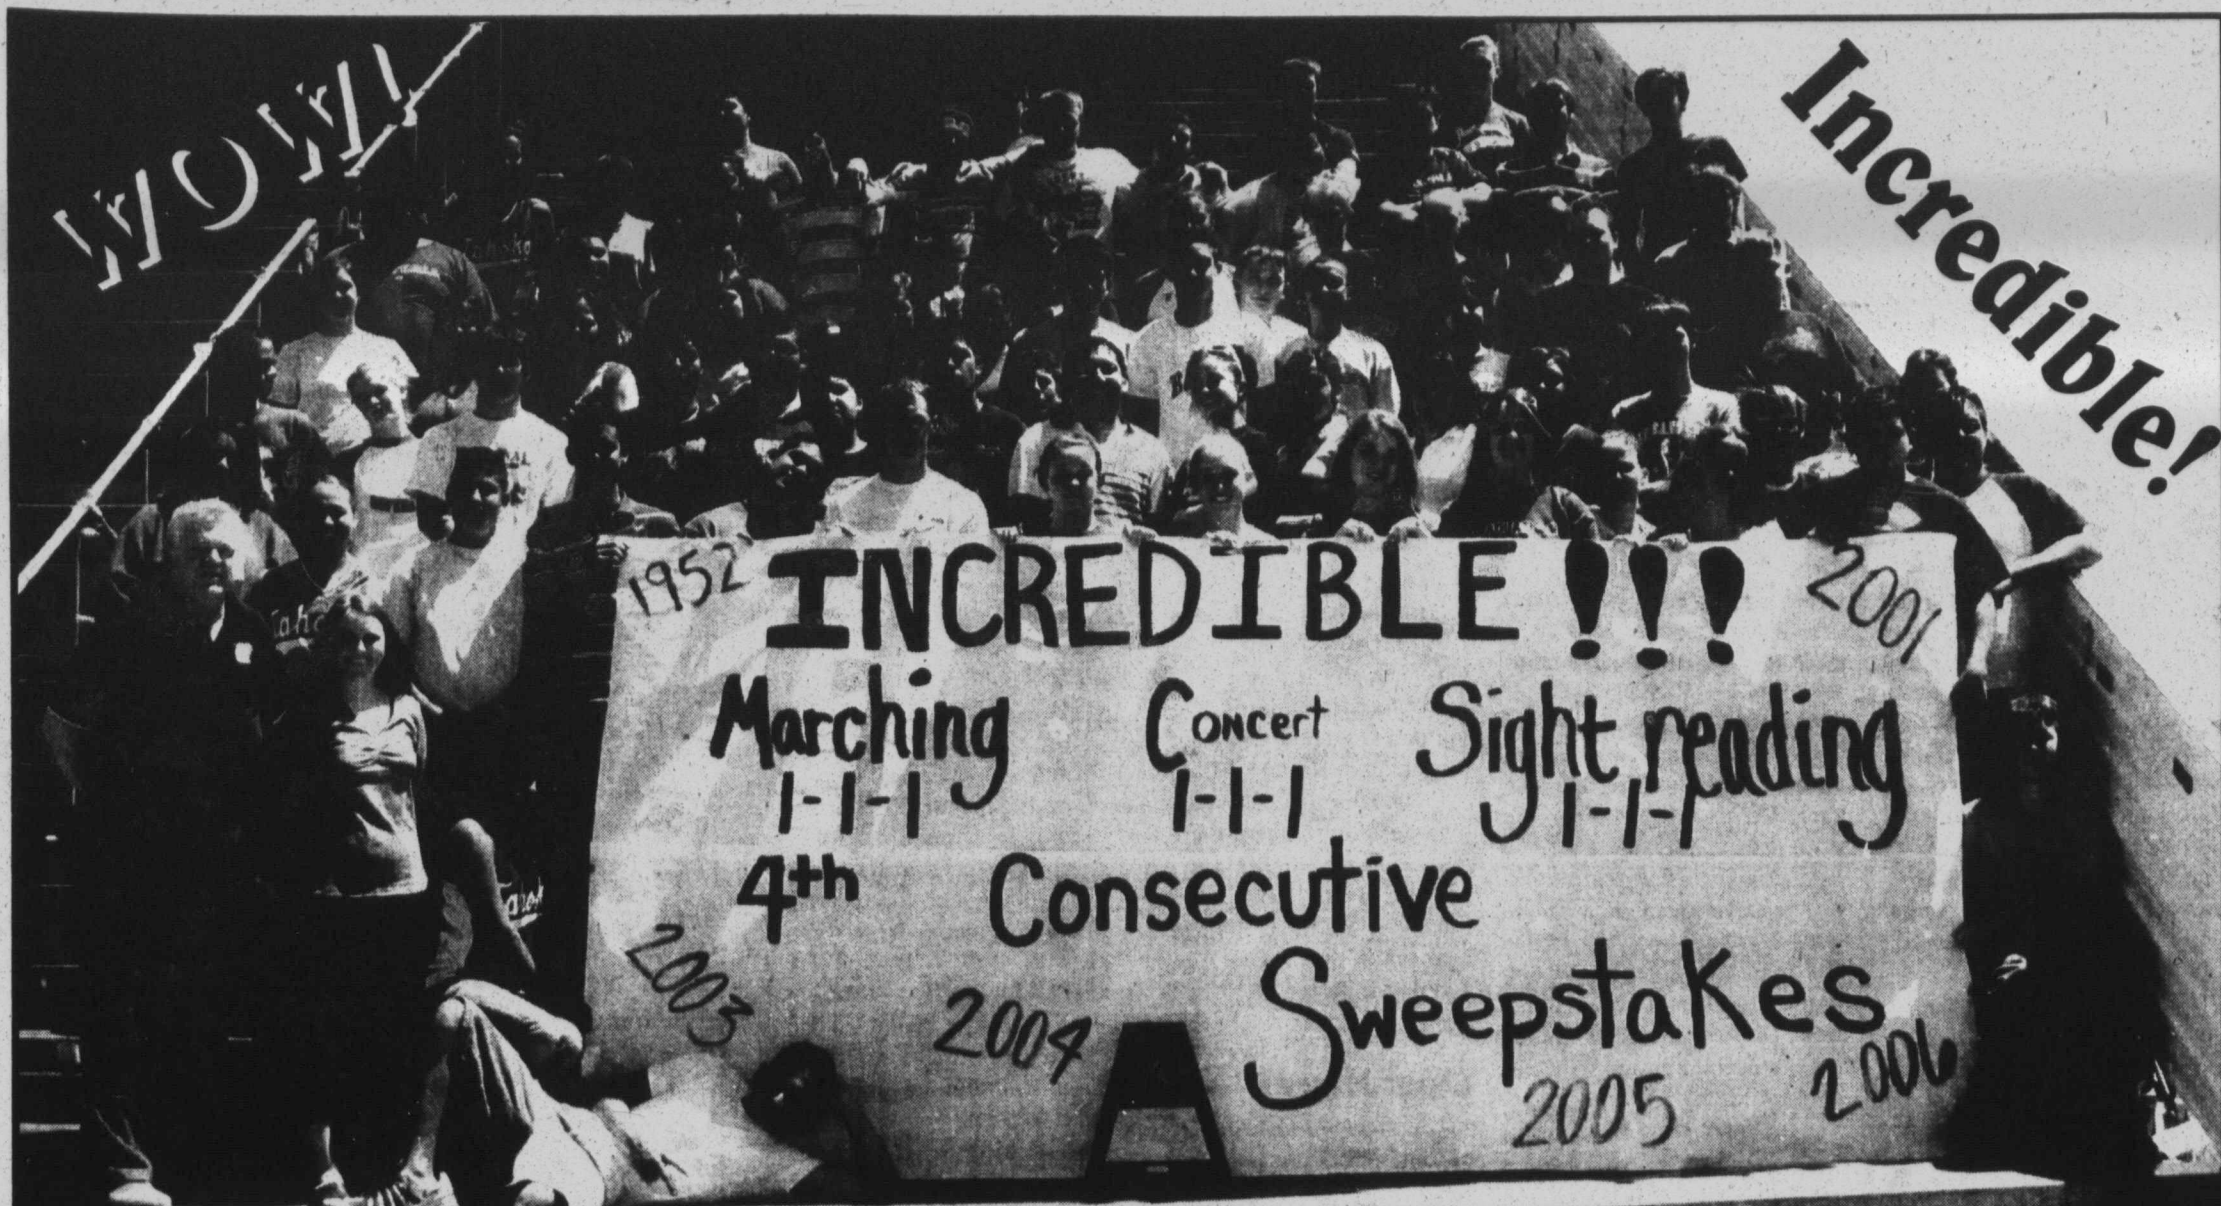 WOW!
Incredible!
Tahoka
1952 INCREDIBLE!!! 2001
Marching Concert Sight reading
1-1-1 1-1-1 1-1-1
4th Consecutive
Sweepstakes
2003 2004 2005 2006